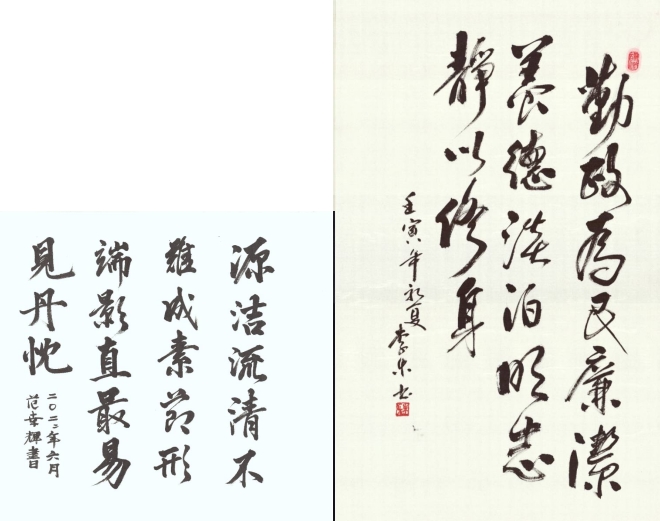 勤政為民廉潔
養德淡泊明志
靜以修身
壬寅年初夏
李朱书
源洁流清不
難成素節形
端影直最易
見丹忱
二〇二二年六月
范幸輝書